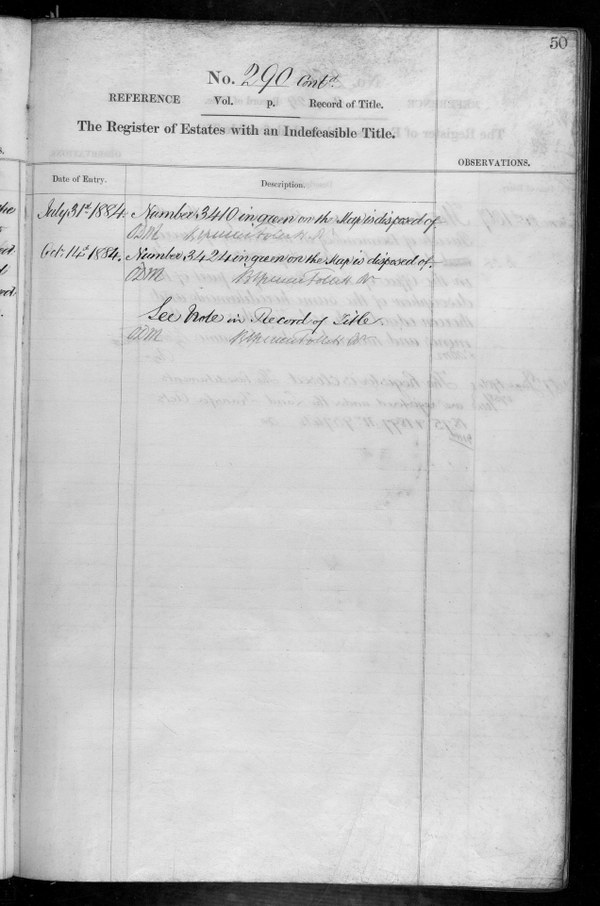 50
No. 290 Contd.
REFERENCE Vol. p. Record of Title.
The Register of Estates with an Indefeasible Title.
OBSERVATIONS.
Date of Entry. Description.
July 31st 1884. Number 3410 in green on the Map is disposed of
Oct. 14th 1884. Number 3424 in green on the Map is disposed of.
See Note in Record of Title.